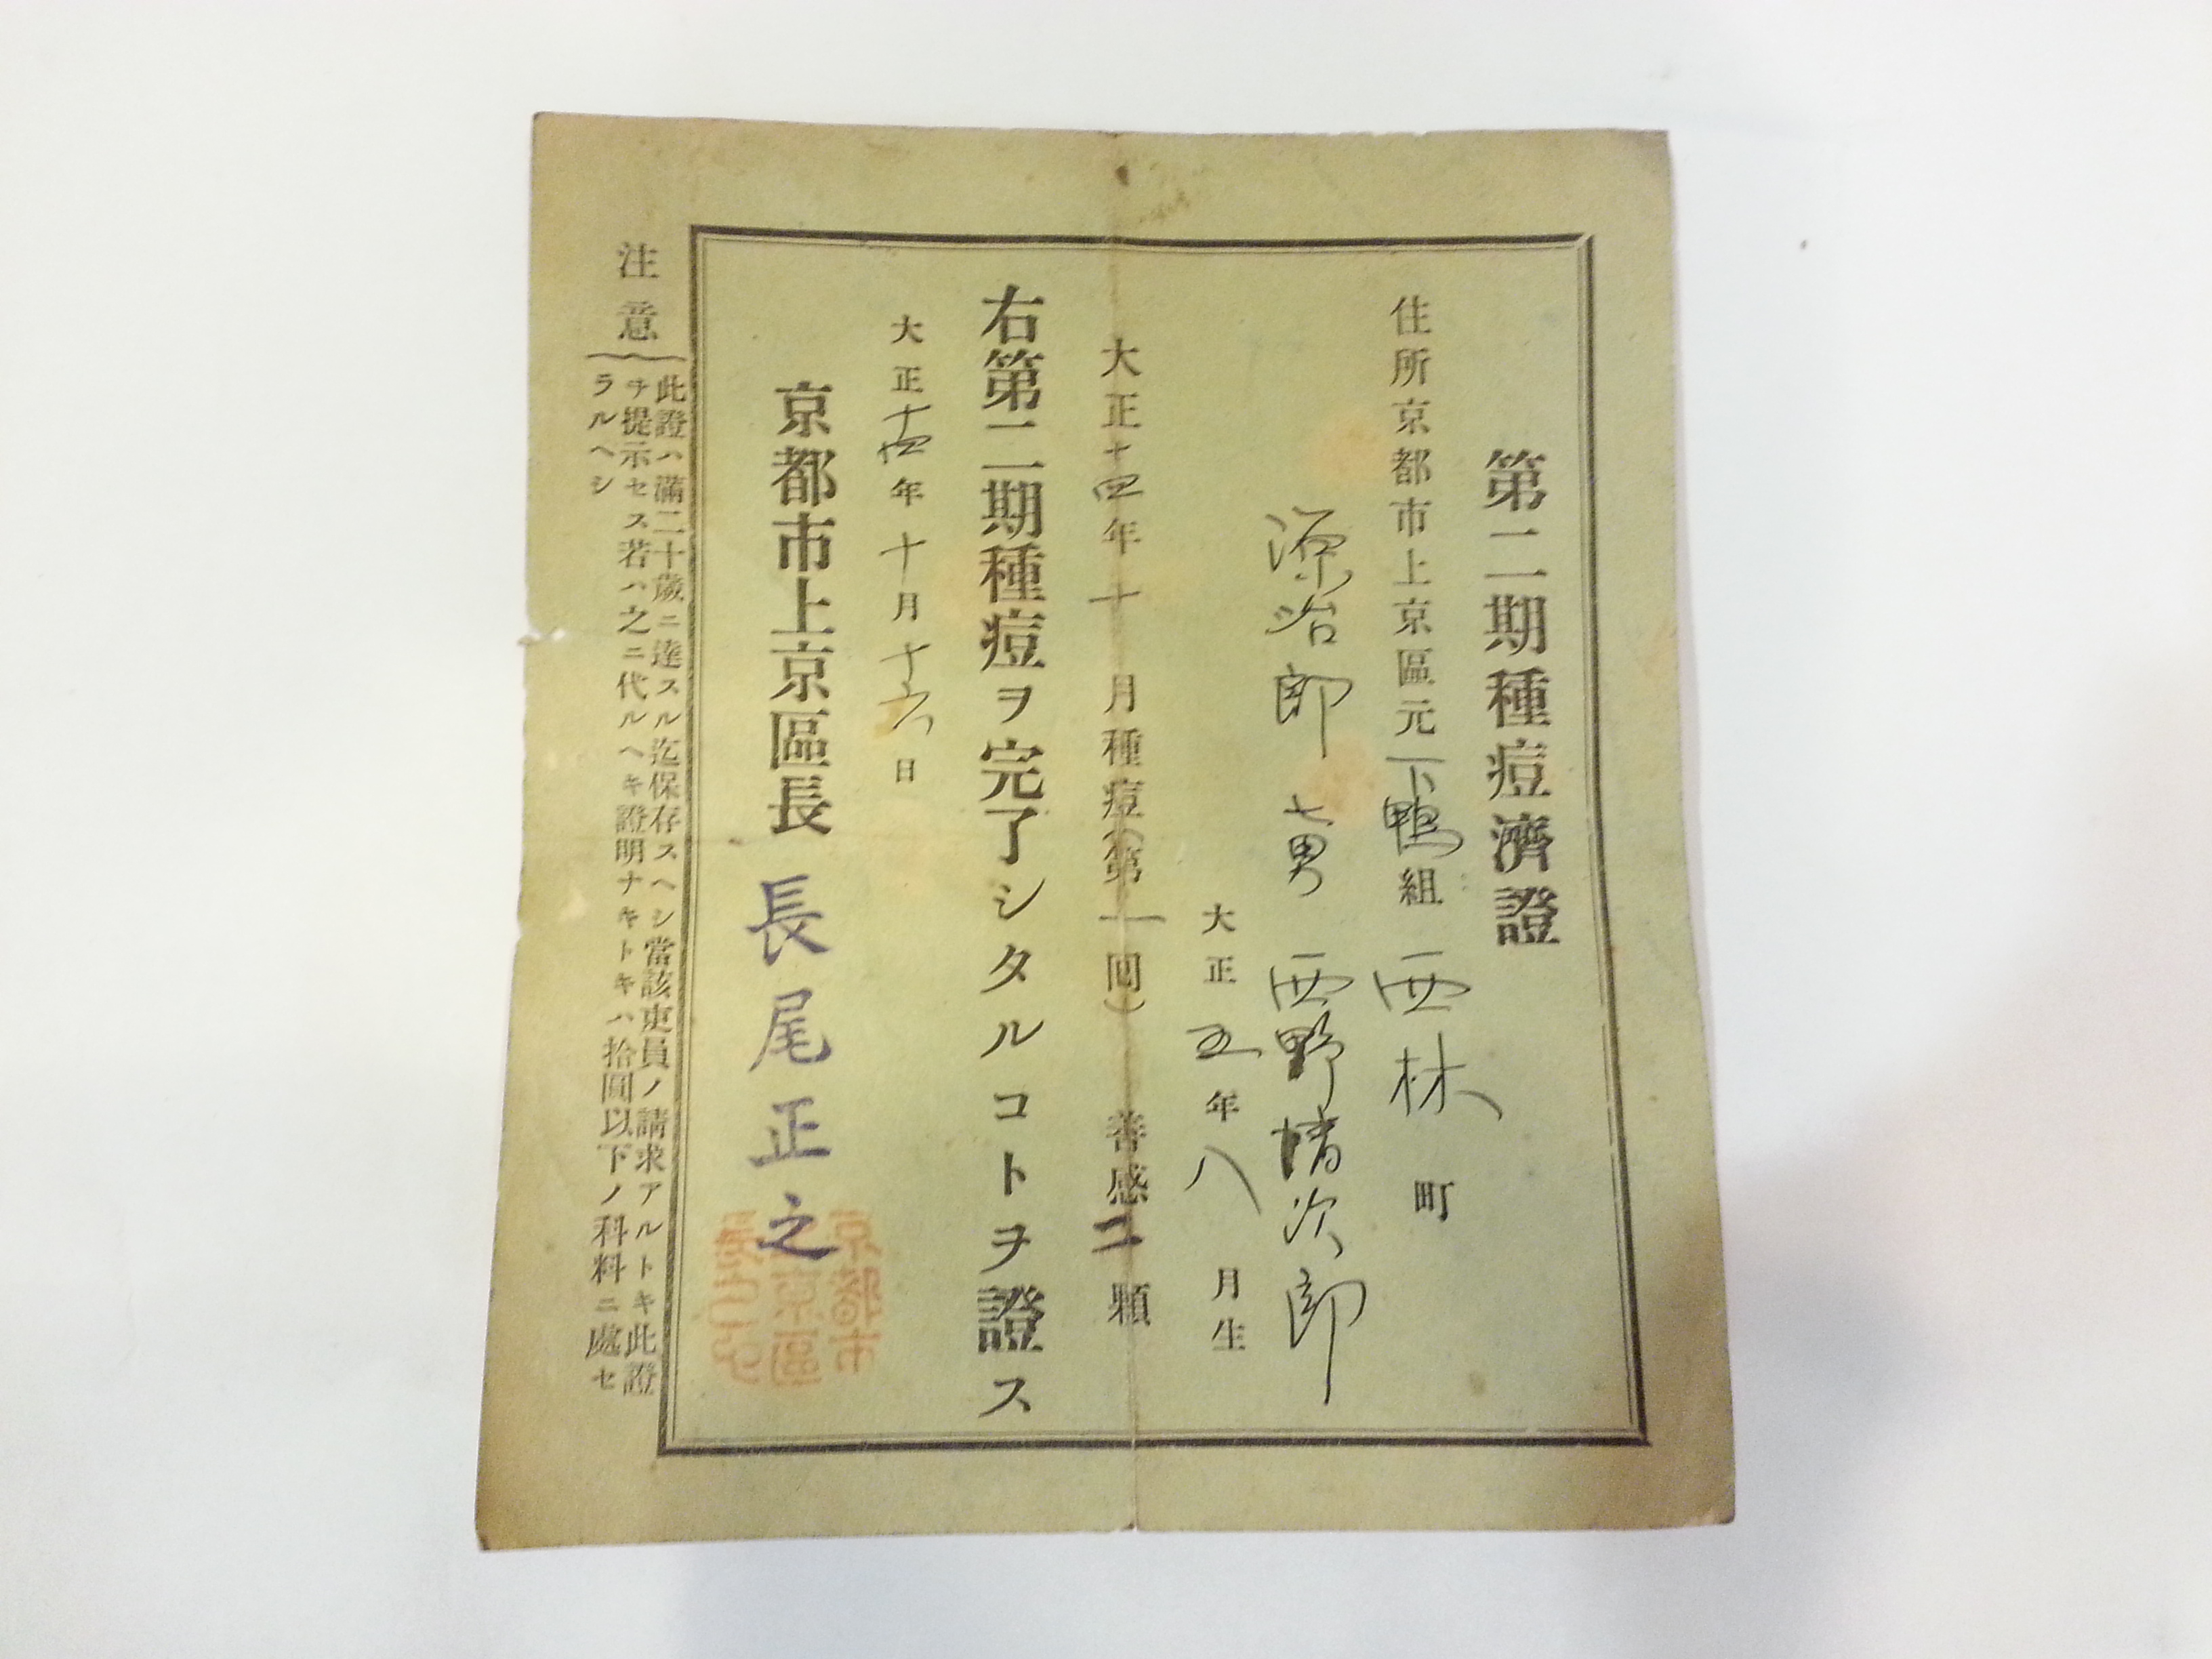 第二期種痘濟證
住所京都市上京區元下鴨組 西林 町
源治郎 七男 西野 次郎
大正五年八月生
大正十四年十月種痘(第一回) 善感二顆
右第二期種痘ヲ完了シタルコトヲ證ス
大正十四年十月十六日
京都市上京區長 長尾正之
京都市上京區
注意
此證ハ滿二十歲ニ達スル迄保存スヘシ當該吏員ノ請求アルトキ此證
ヲ提示セス若ハ之ニ代ルヘキ證明ナキトキハ拾圓以下ノ科料ニ處セ
ラルヘシ